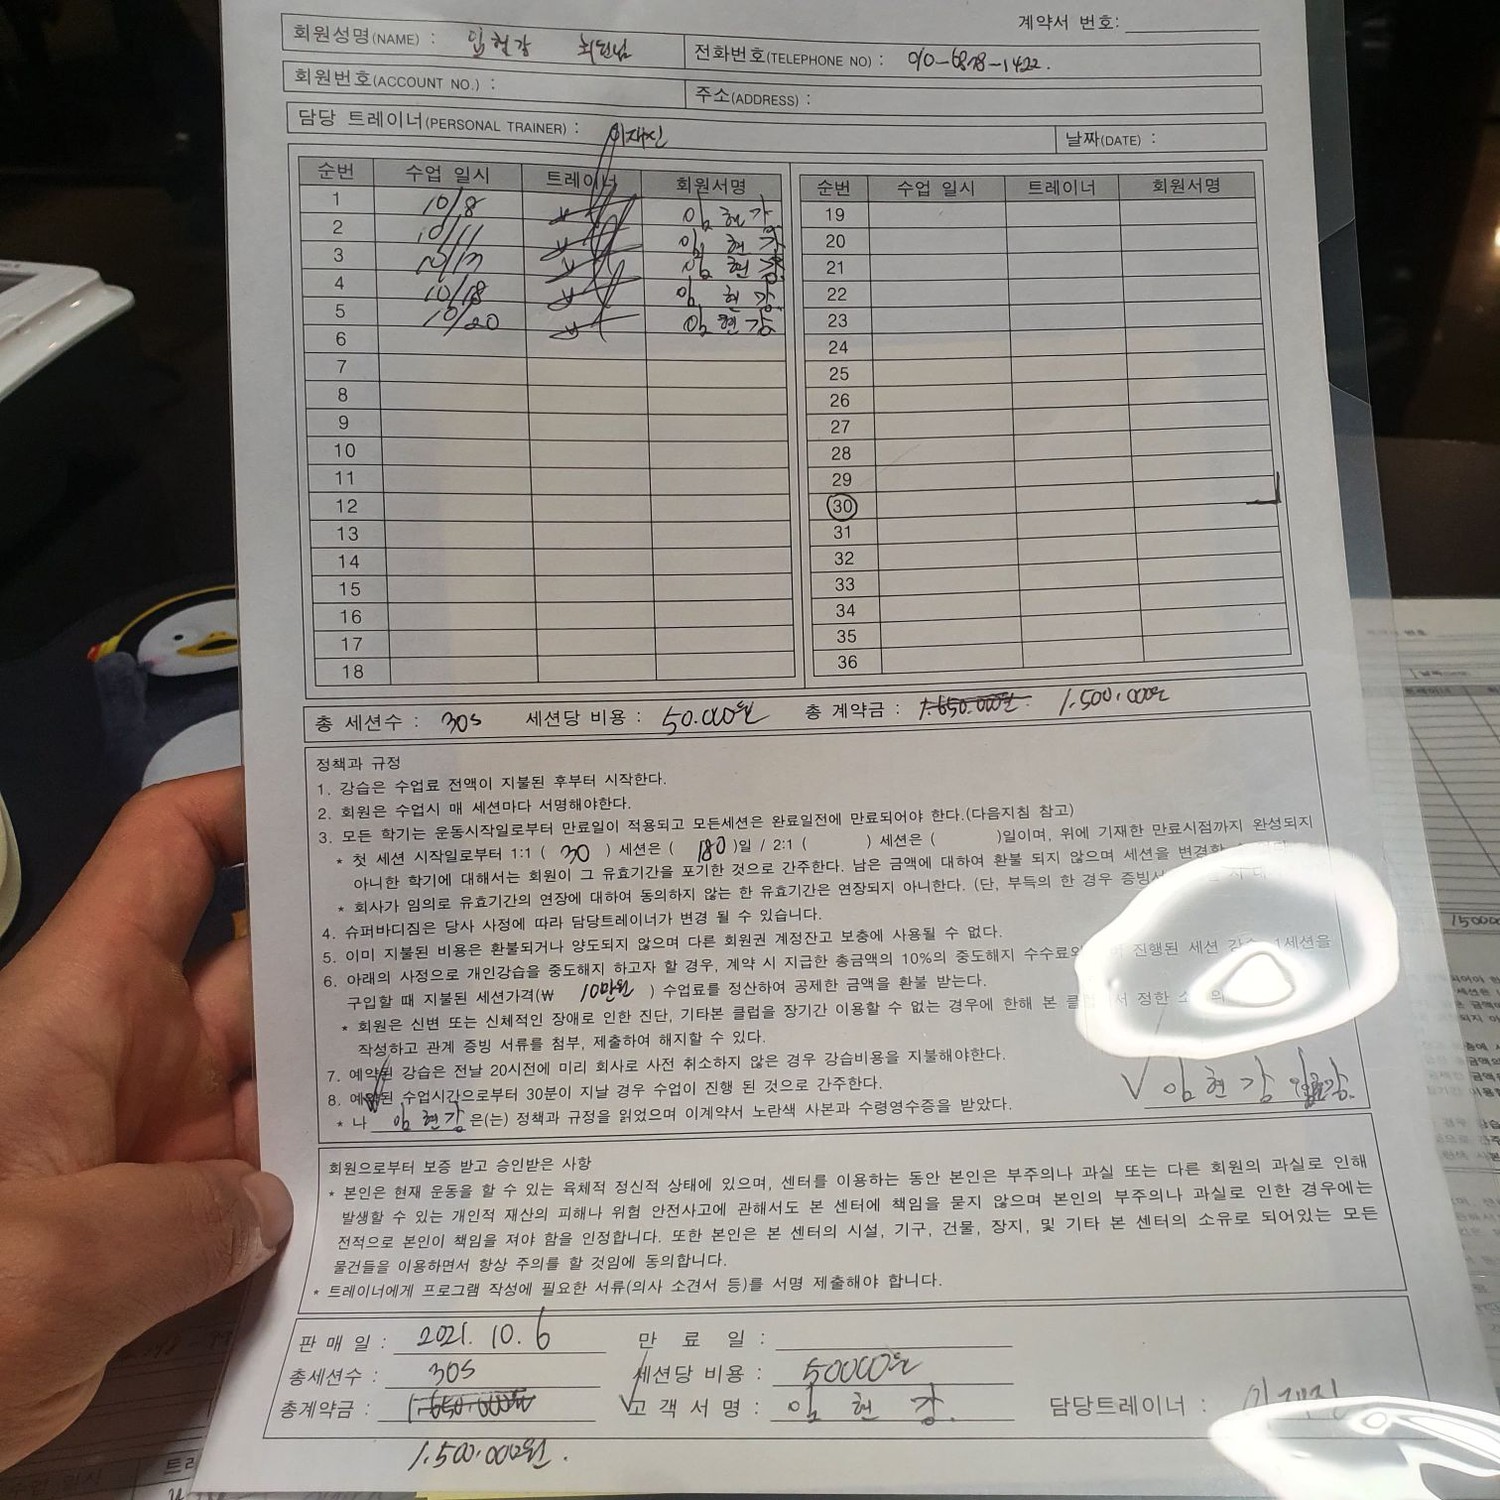 계약서 번호:
회원성명(NAME) : 임현강 회원님 전화번호(TELEPHONE NO) : 010-6878-1422.
회원번호(ACCOUNT NO.) : 주소(ADDRESS) :
담당 트레이너(PERSONAL TRAINER) : 이재진 날짜(DATE) :
순번 수업 일시 트레이너 회원서명 순번 수업 일시 트레이너 회원서명
1 10/8 임현강 19
2 10/11 임현강 20
3 임현강 21
4 10/18 임현강 22
5 10/20 임현강 23
6 24
7 25
8 26
9 27
10 28
11 29
12 30
13 31
14 32
15 33
16 34
17 35
18 36
총 세션수 : 30s 세션당 비용 : 50.000원 총 계약금 : 1.650.000원 1.500.000원
정책과 규정
1. 강습은 수업료 전액이 지불된 후부터 시작한다.
2. 회원은 수업시 매 세션마다 서명해야한다.
3. 모든 학기는 운동시작일로부터 만료일이 적용되고 모든세션은 완료일전에 만료되어야 한다.(다음지침 참고)
* 첫 세션 시작일로부터 1:1 ( 30 ) 세션은 ( 180 )일 / 2:1 ( ) 세션은 ( )일이며, 위에 기재한 만료시점까지 완성되지
아니한 학기에 대해서는 회원이 그 유효기간을 포기한 것으로 간주한다. 남은 금액에 대하여 환불 되지 않으며 세션을 변경할
* 회사가 임의로 유효기간의 연장에 대하여 동의하지 않는 한 유효기간은 연장되지 아니한다. (단, 부득의 한 경우
4. 슈퍼바디짐은 당사 사정에 따라 담당트레이너가 변경 될 수 있습니다.
5. 이미 지불된 비용은 환불되거나 양도되지 않으며 다른 회원권 계정잔고 보충에 사용될 수 없다.
6. 아래의 사정으로 개인강습을 중도해지 하고자 할 경우, 계약 시 지급한 총금액의 10%의 중도해지 수수료와 진행된 세션 1세션을
구입할 때 지불된 세션가격(₩ 10만원 ) 수업료를 정산하여 공제한 금액을 환불 받는다.
* 회원은 신변 또는 신체적인 장애로 인한 진단, 기타본 클럽을 장기간 이용할 수 없는 경우에 한해 본 정한
작성하고 관계 증빙 서류를 첨부, 제출하여 해지할 수 있다.
7. 예약된 강습은 전날 20시전에 미리 회사로 사전 취소하지 않은 경우 강습비용을 지불해야한다.
8. 예약된 수업시간으로부터 30분이 지날 경우 수업이 진행 된 것으로 간주한다.
* 나 임현강 은(는) 정책과 규정을 읽었으며 이계약서 노란색 사본과 수령영수증을 받았다. 임현강
회원으로부터 보증 받고 승인받은 사항
* 본인은 현재 운동을 할 수 있는 육체적 정신적 상태에 있으며, 센터를 이용하는 동안 본인은 부주의나 과실 또는 다른 회원의 과실로 인해
발생할 수 있는 개인적 재산의 피해나 위험 안전사고에 관해서도 본 센터에 책임을 묻지 않으며 본인의 부주의나 과실로 인한 경우에는
전적으로 본인이 책임을 져야 함을 인정합니다. 또한 본인은 본 센터의 시설, 기구, 건물, 장지, 및 기타 본 센터의 소유로 되어있는 모든
물건들을 이용하면서 항상 주의를 할 것임에 동의합니다.
* 트레이너에게 프로그램 작성에 필요한 서류(의사 소견서 등)를 서명 제출해야 합니다.
판 매 일 : 2021. 10. 6 만 료 일 :
총세션수 : 30s 세션당 비용 : 50000원
총계약금 : 1.650.000원 고 객 서 명 : 임 현 강. 담당트레이너 : 이재진
1.500.000원.